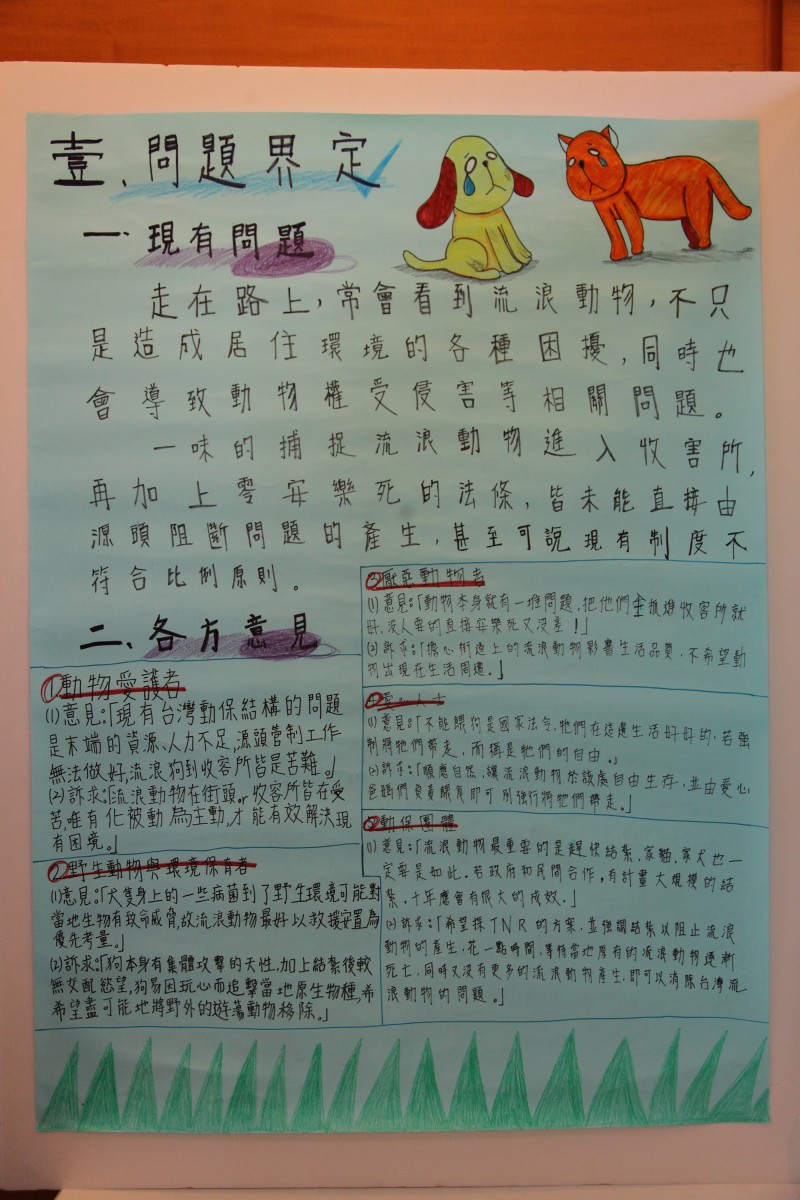 壹、問題界定
一、現有問題
走在路上，常會看到流浪動物，不只
是造成居住環境的各種困擾，同時也
會導致動物權受侵害等相關問題。
一味的捕捉流浪動物進入收害所，
再加上零安樂死的法條，皆未能直接由
源頭阻斷問題的產生，甚至可說現有制度不
符合比例原則。
二、各方意見
①動物愛護者
(1)意見：「現有台灣動保結構的問題
是末端的資源、人力不足，源頭管制工作
無法做好，流浪狗到收容所皆是苦難。」
(2)訴求：「流浪動物在街頭or收容所皆在受
苦，唯有化被動為主動，才能有效解決現
有困境。」
②野生動物與環境保育者
(1)意見：「犬隻身上的一些病菌到了野生環境可能對
當地生物有致命威脅，故流浪動物最好以救援安置為
優先考量。」
(2)訴求：「狗本身有集體攻擊的天性，加上結紮後較
無交配慾望，狗易因玩心而追擊當地原生物種，希
希望盡可能地將野外的遊蕩動物移除。」
③厭惡動物者
(1)意見：「動物本身就有一堆問題，把他們全抓進收容所就
好，沒人要的直接安樂死又沒差！」
(2)訴求：「擔心街道上的流浪動物影響生活品質，不希望動
物出現在生活周遭。」
④愛心人士
(1)意見：「不能餵狗是國家法令，牠們在這邊生活好好的，若強
制將牠們帶走，而損是牠們的自由。」
(2)訴求：「順應自然，讓流浪動物於該處自由生存，並由愛心
爸媽們負責餵食即可，別強行將牠們帶走。」
動保團體
(1)意見：「流浪動物最重要的是趕快結紮，家貓、家犬也一
定要是如此。若政府和民間合作，有計畫大規模的結
紮，十年應會有很大的成效。」
(2)訴求：「希望採TNR的方案，並強調結紮以阻止流浪
動物的產生，花一點時間，等待當地原有的流浪動物逐漸
死亡，同時又沒有更多的流浪動物產生，即可以消除台灣流
浪動物的問題。」